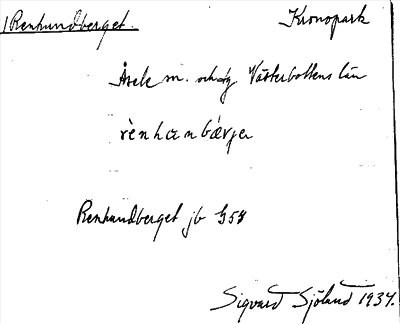 Renhundberget. Kronopark
Åsele sn. och lg Västerbottens län
rènhanbærjer
Renhundberget jb G58
Sigvard Sjölund 1934.